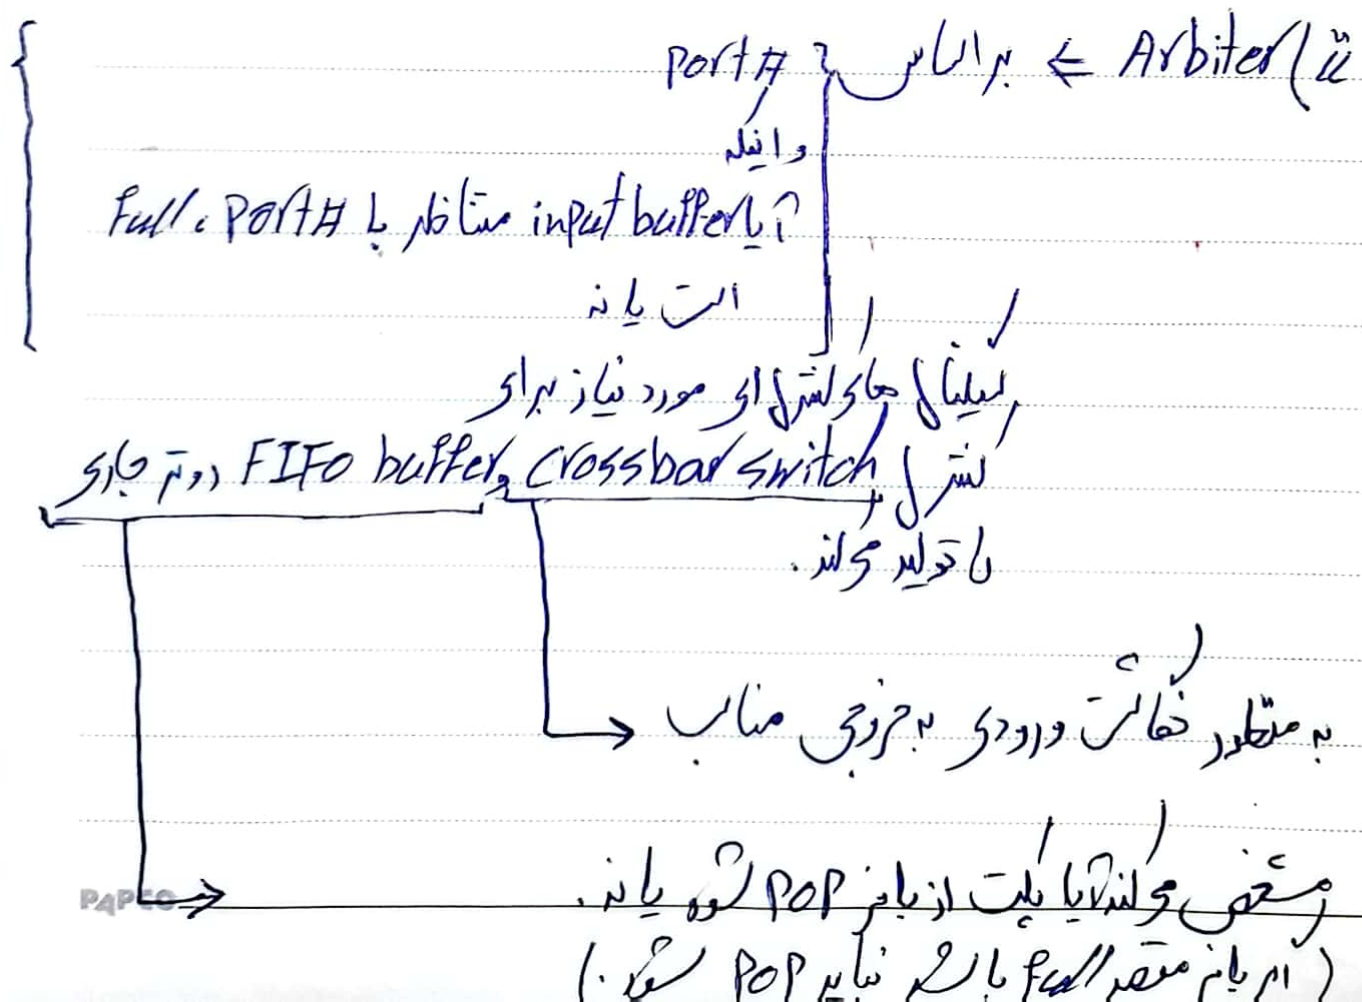 ii) Arbiter ⇐ براساس port#
و اینکه
آیا input buffer متناظر با port#، Full
است یا نه
سیگنال های کنترلی مورد نیاز برای
کنترل crossbar switch و FIFO buffer روتر جاری
را تولید میکند.
به منظور نگاشت ورودی به خروجی مناسب
مشخص میکند آیا پکت از بافر POP شود یا نه.
(اگر بافر مقصد Full باشد نباید POP شود.)
PAPCO